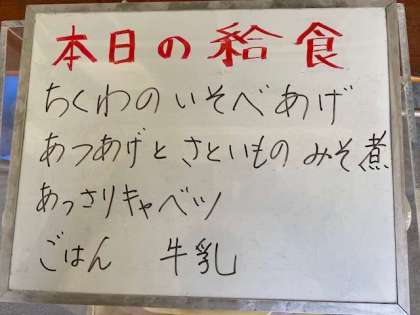 本日の給食
ちくわのいそべあげ
あつあげとさといものみそ煮
あっさりキャベツ
ごはん　牛乳